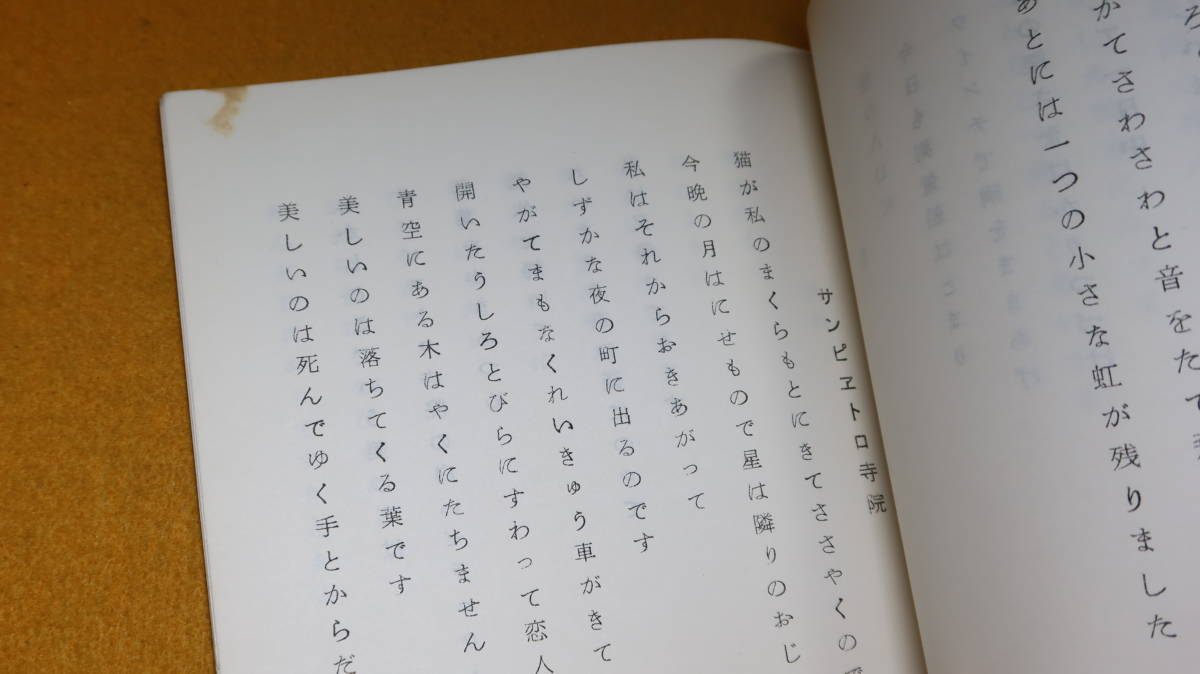 かてさわさわと音をたて
あとには一つの小さな虹が残りました
サンピエトロ寺院
猫が私のまくらもとにきてささやくので
今晩の月はにせもので星は隣りのおじ
私はそれからおきあがって
しずかな夜の町に出るのです
やがてまもなくれいきゅう車がきて
開いたうしろとびらにすわって恋人
青空にある木はやくにたちません
美しいのは落ちてくる葉です
美しいのは死んでゆく手とからだ